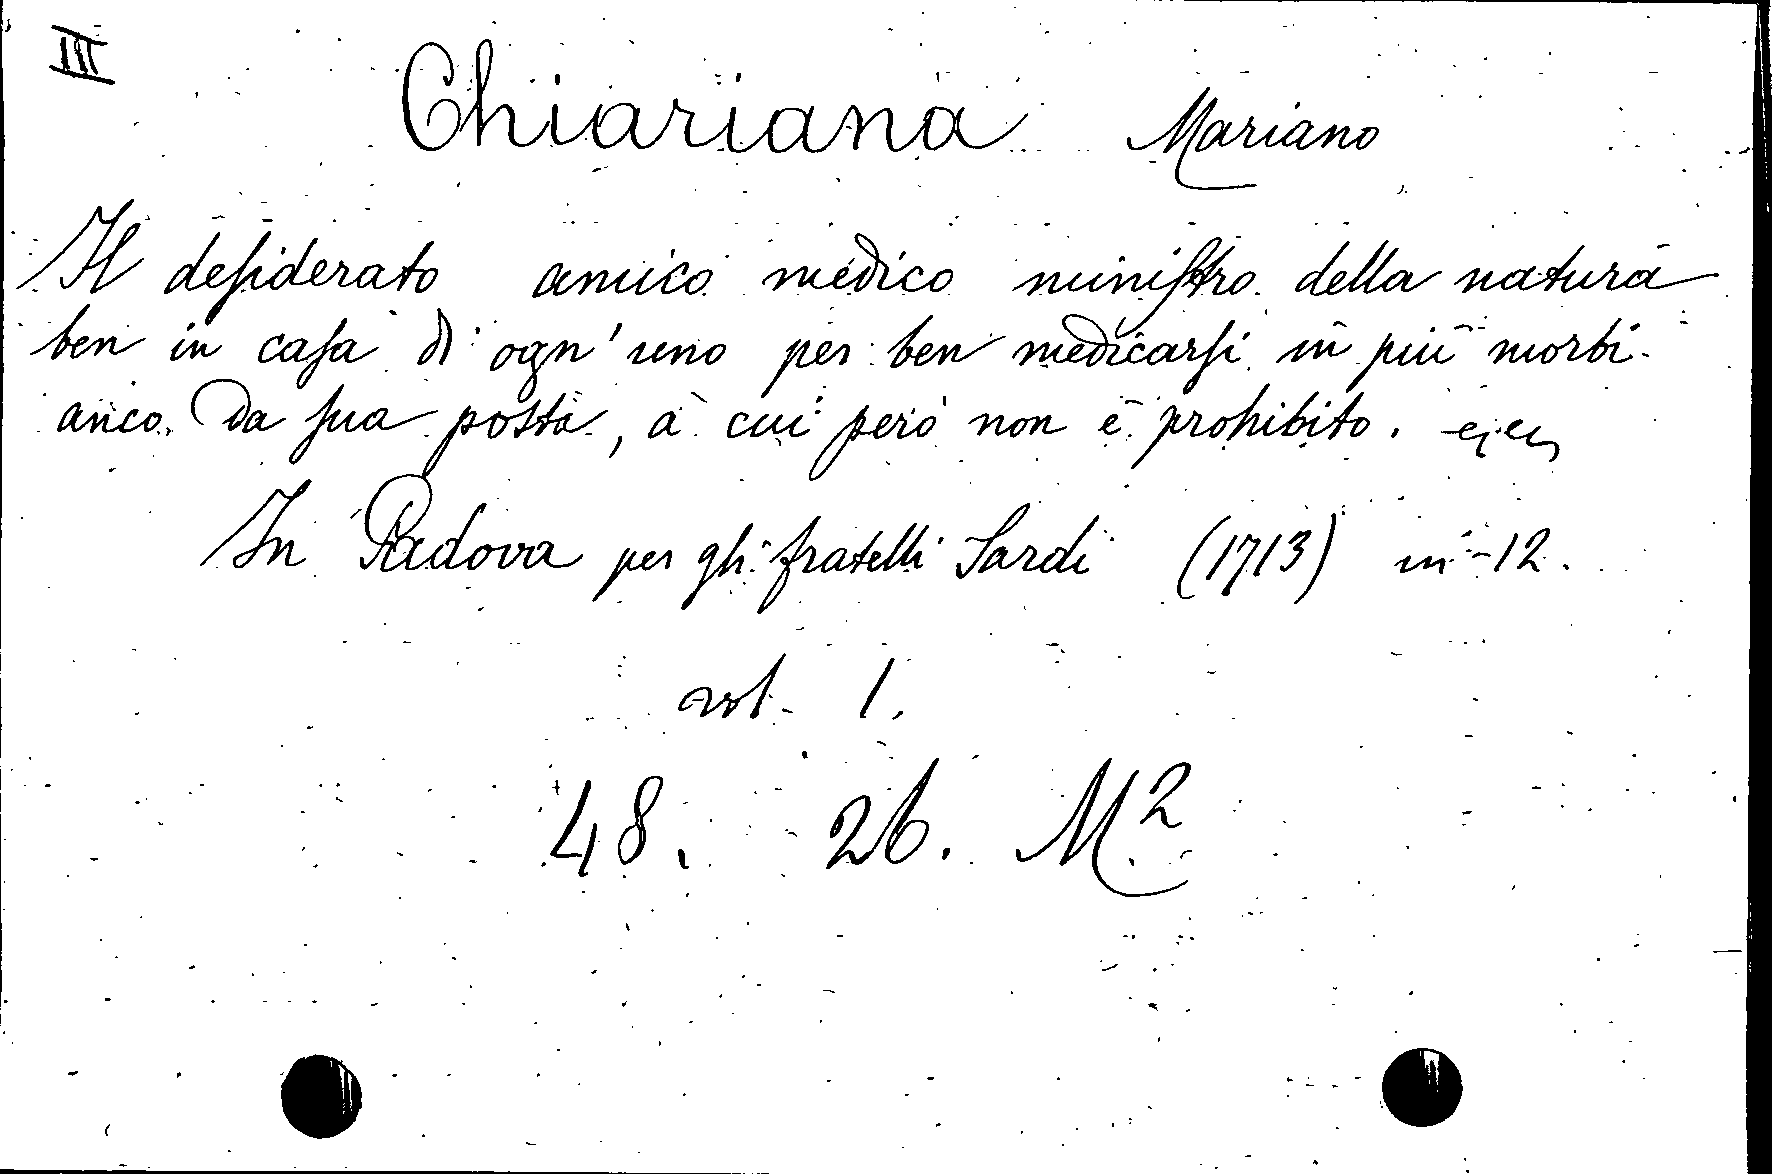 III
Chiariana Mariano
Il deſiderato amico medico miniſtro della natura
ben in caſa di ogn'uno per ben medicarſi in più morbi
anco da ſua posta, à cui però non è prohibito.
In Padova per gli fratelli Sardi (1713) in-12.
vol. 1.
48. 26. M²